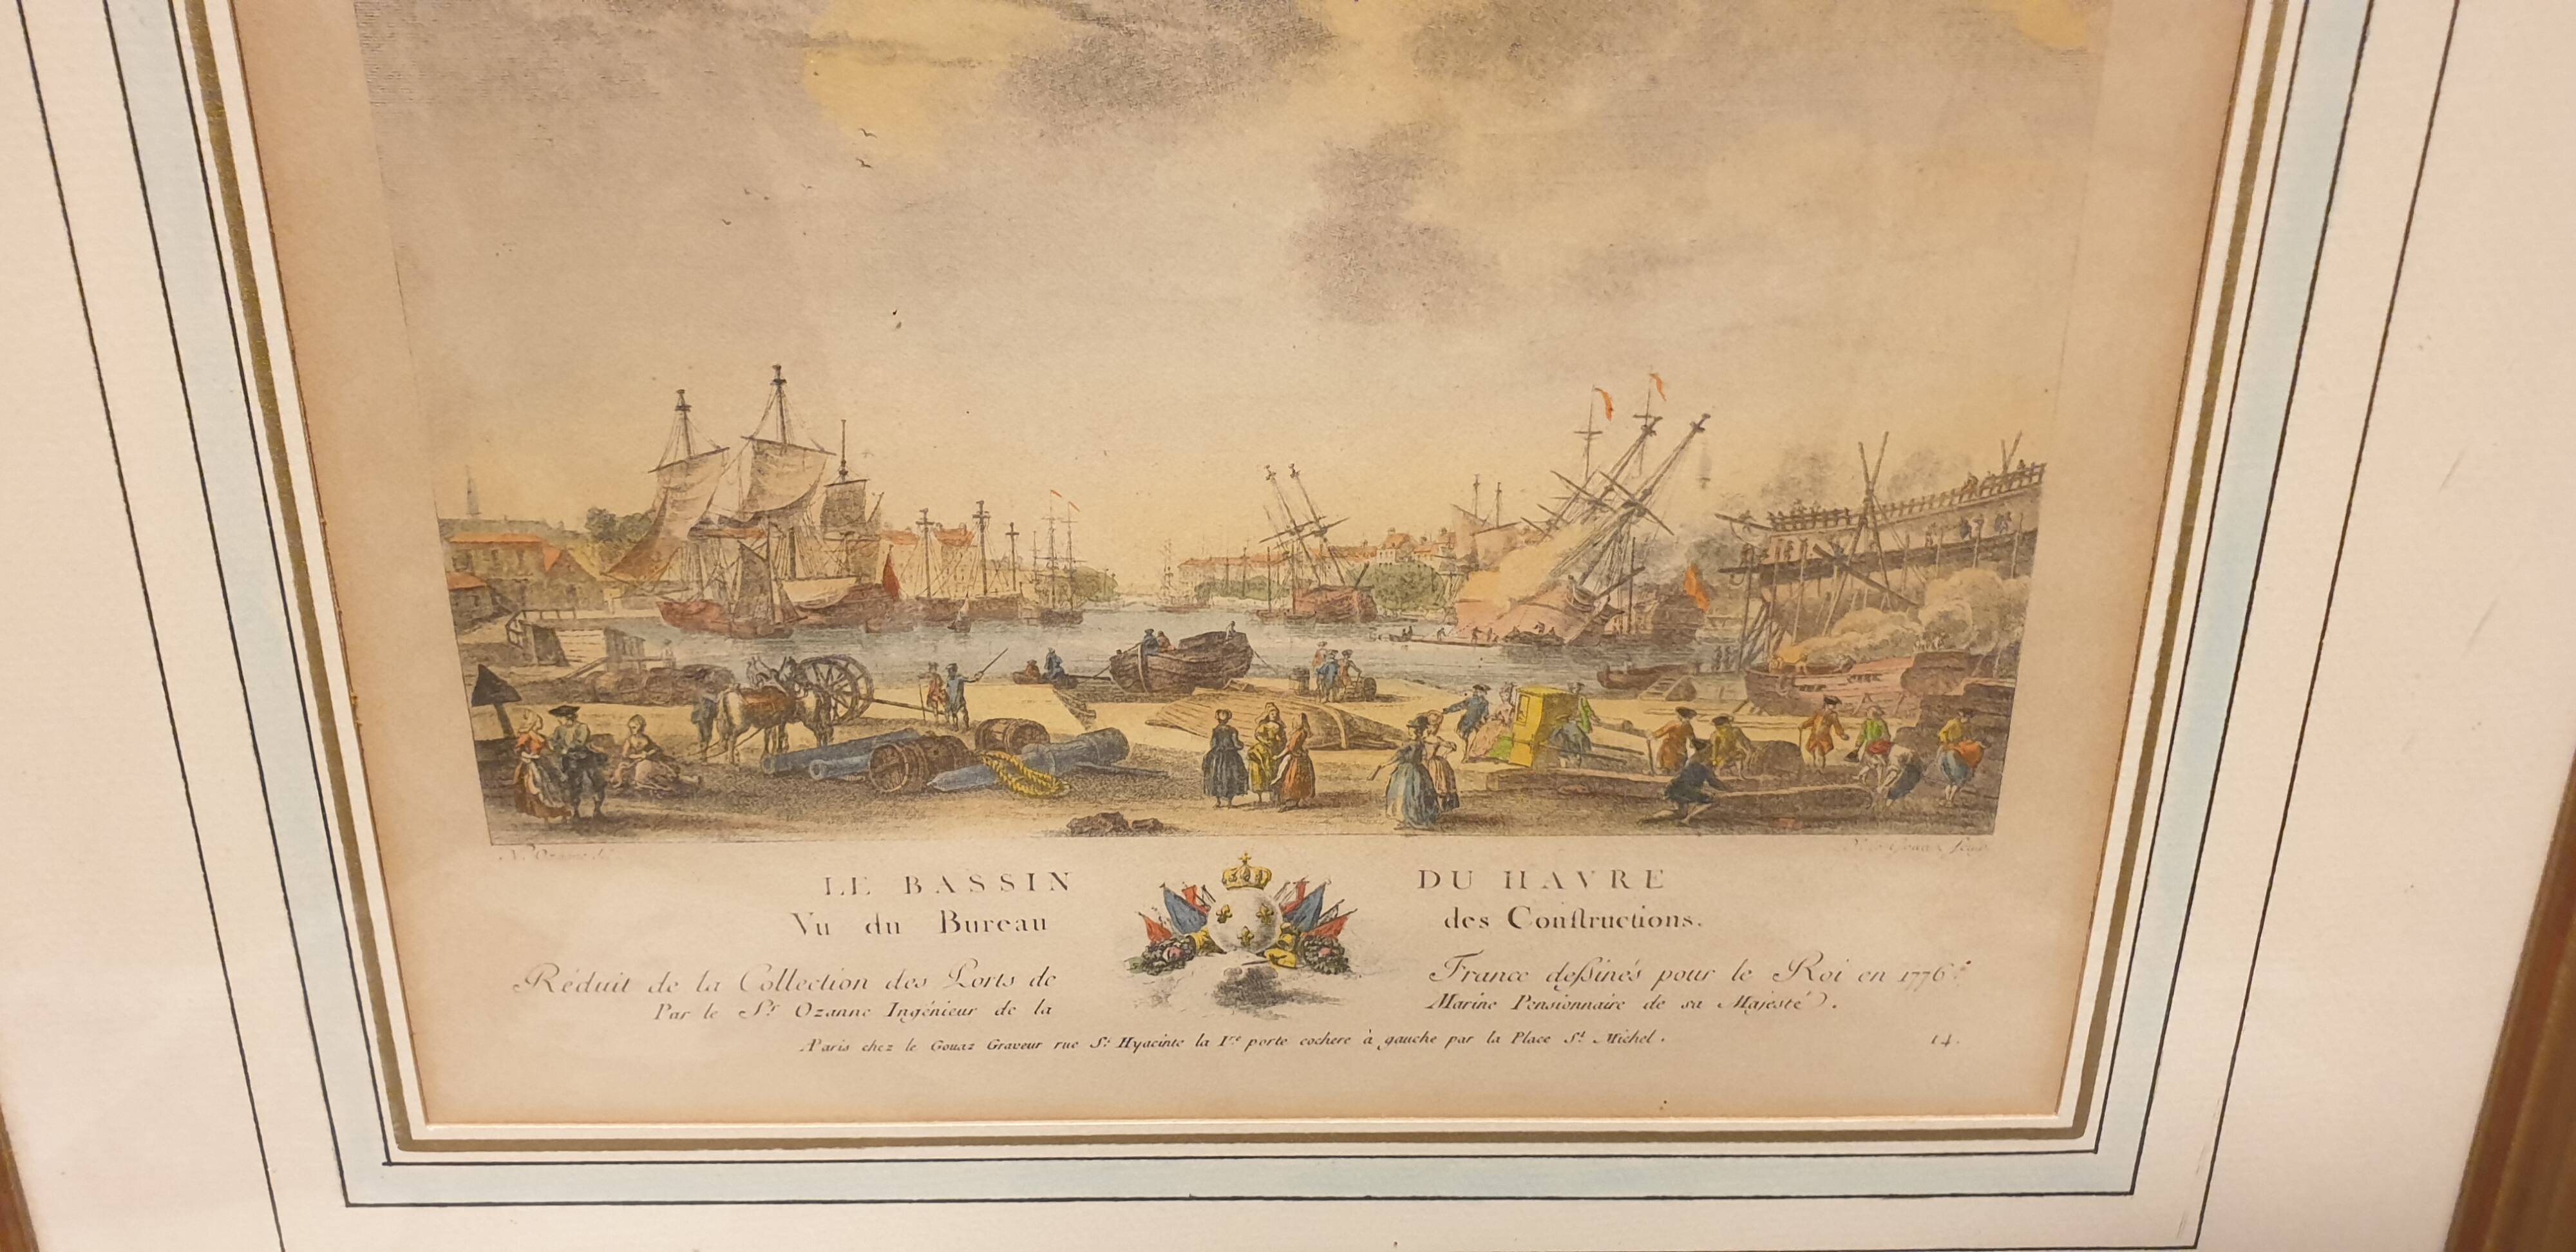 N. Ozanne del.
LE BASSIN DU HAVRE
Vu du Bureau des Conſtructions.
Réduit de la Collection des Ports de France deſsinés pour le Roi en 1776.
Par le Sr. Ozanne Ingénieur de la Marine Pensionnaire de sa Majesté.
A Paris chez le Gouaz Graveur rue St. Hyacinte la 1re porte cochere à gauche par la Place St. Michel.
14.